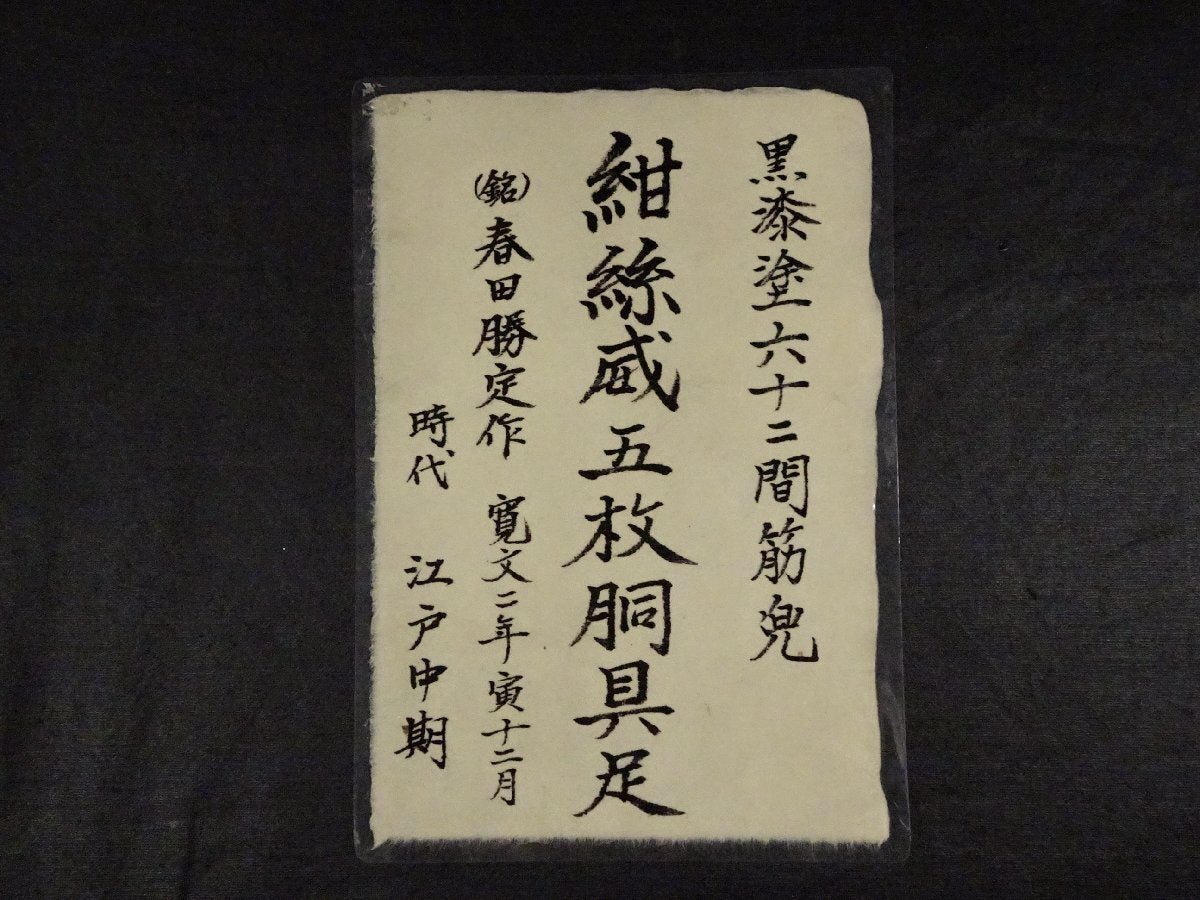 黒漆塗六十二間筋兜
紺絲威五枚胴具足
(銘)春田勝定作 寛文二年寅十二月
時代 江戸中期